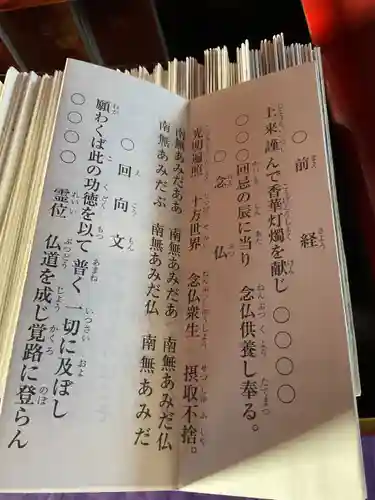 ○前経
上来謹んで香華灯燭を献じ ○○○○
○○○回忌の辰に当り 念仏供養し奉る。
○念仏
光明遍照 十方世界 念仏衆生 摂取不捨。
南無あみだぶ 南無あみだ仏 南無あみだ
○回向文
願わくば此の功徳を以て 普く一切に及ぼし
○○○○ 霊位 仏道を成じ覚路に登らん